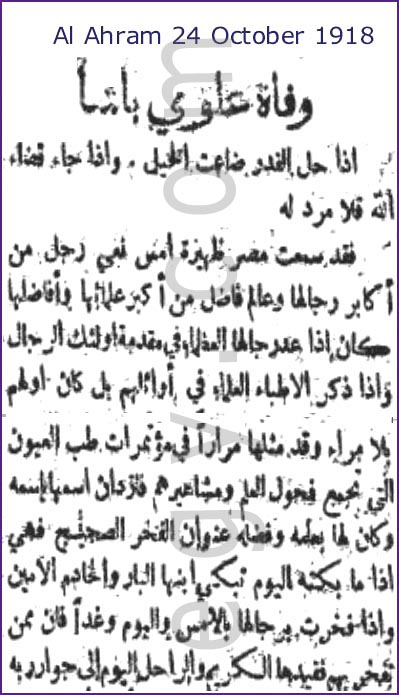 Al Ahram 24 October 1918
وفاة علوي باشا
اذا حل القدر ضاعت الحيل . واذا جاء قضاء
الله فلا مرد له
فقد سمعت مصر ظهيرة أمس نعي رجل من
أكابر رجالها وعالم فاضل من أكبر علمائها وأفاضلها
كان إذا عد رجالها العظماء في مقدمة اولئك الرجال
وإذا ذكر الاطباء العلماء في أوائلهم بل كان اولهم
بلا مراء وقد مثلها مراراً في مؤتمرات طب العيون
التي تجمع فحول العلم ومشاهيرهم فازدان اسمها باسمه
وكان لها بعلمه وفضله عنوان الفخر الصحيح فهي
اذا ما بكته اليوم تبكي ابنها البار والخادم الأمين
واذا فخرت برجالها بالأمس واليوم وغداً فان ممن
تفخر بهم فقيدها الكريم والراحل اليوم إلى جوار ربه